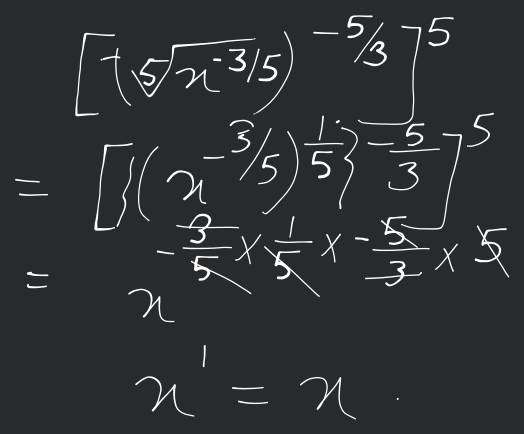 [(⁵√x^{-3/5})^{-5/3}]^5
= [{(x^{-3/5})^{1/5}}^{-5/3}]^5
= x^{-3/5 × 1/5 × -5/3 × 5}
x^1 = x.